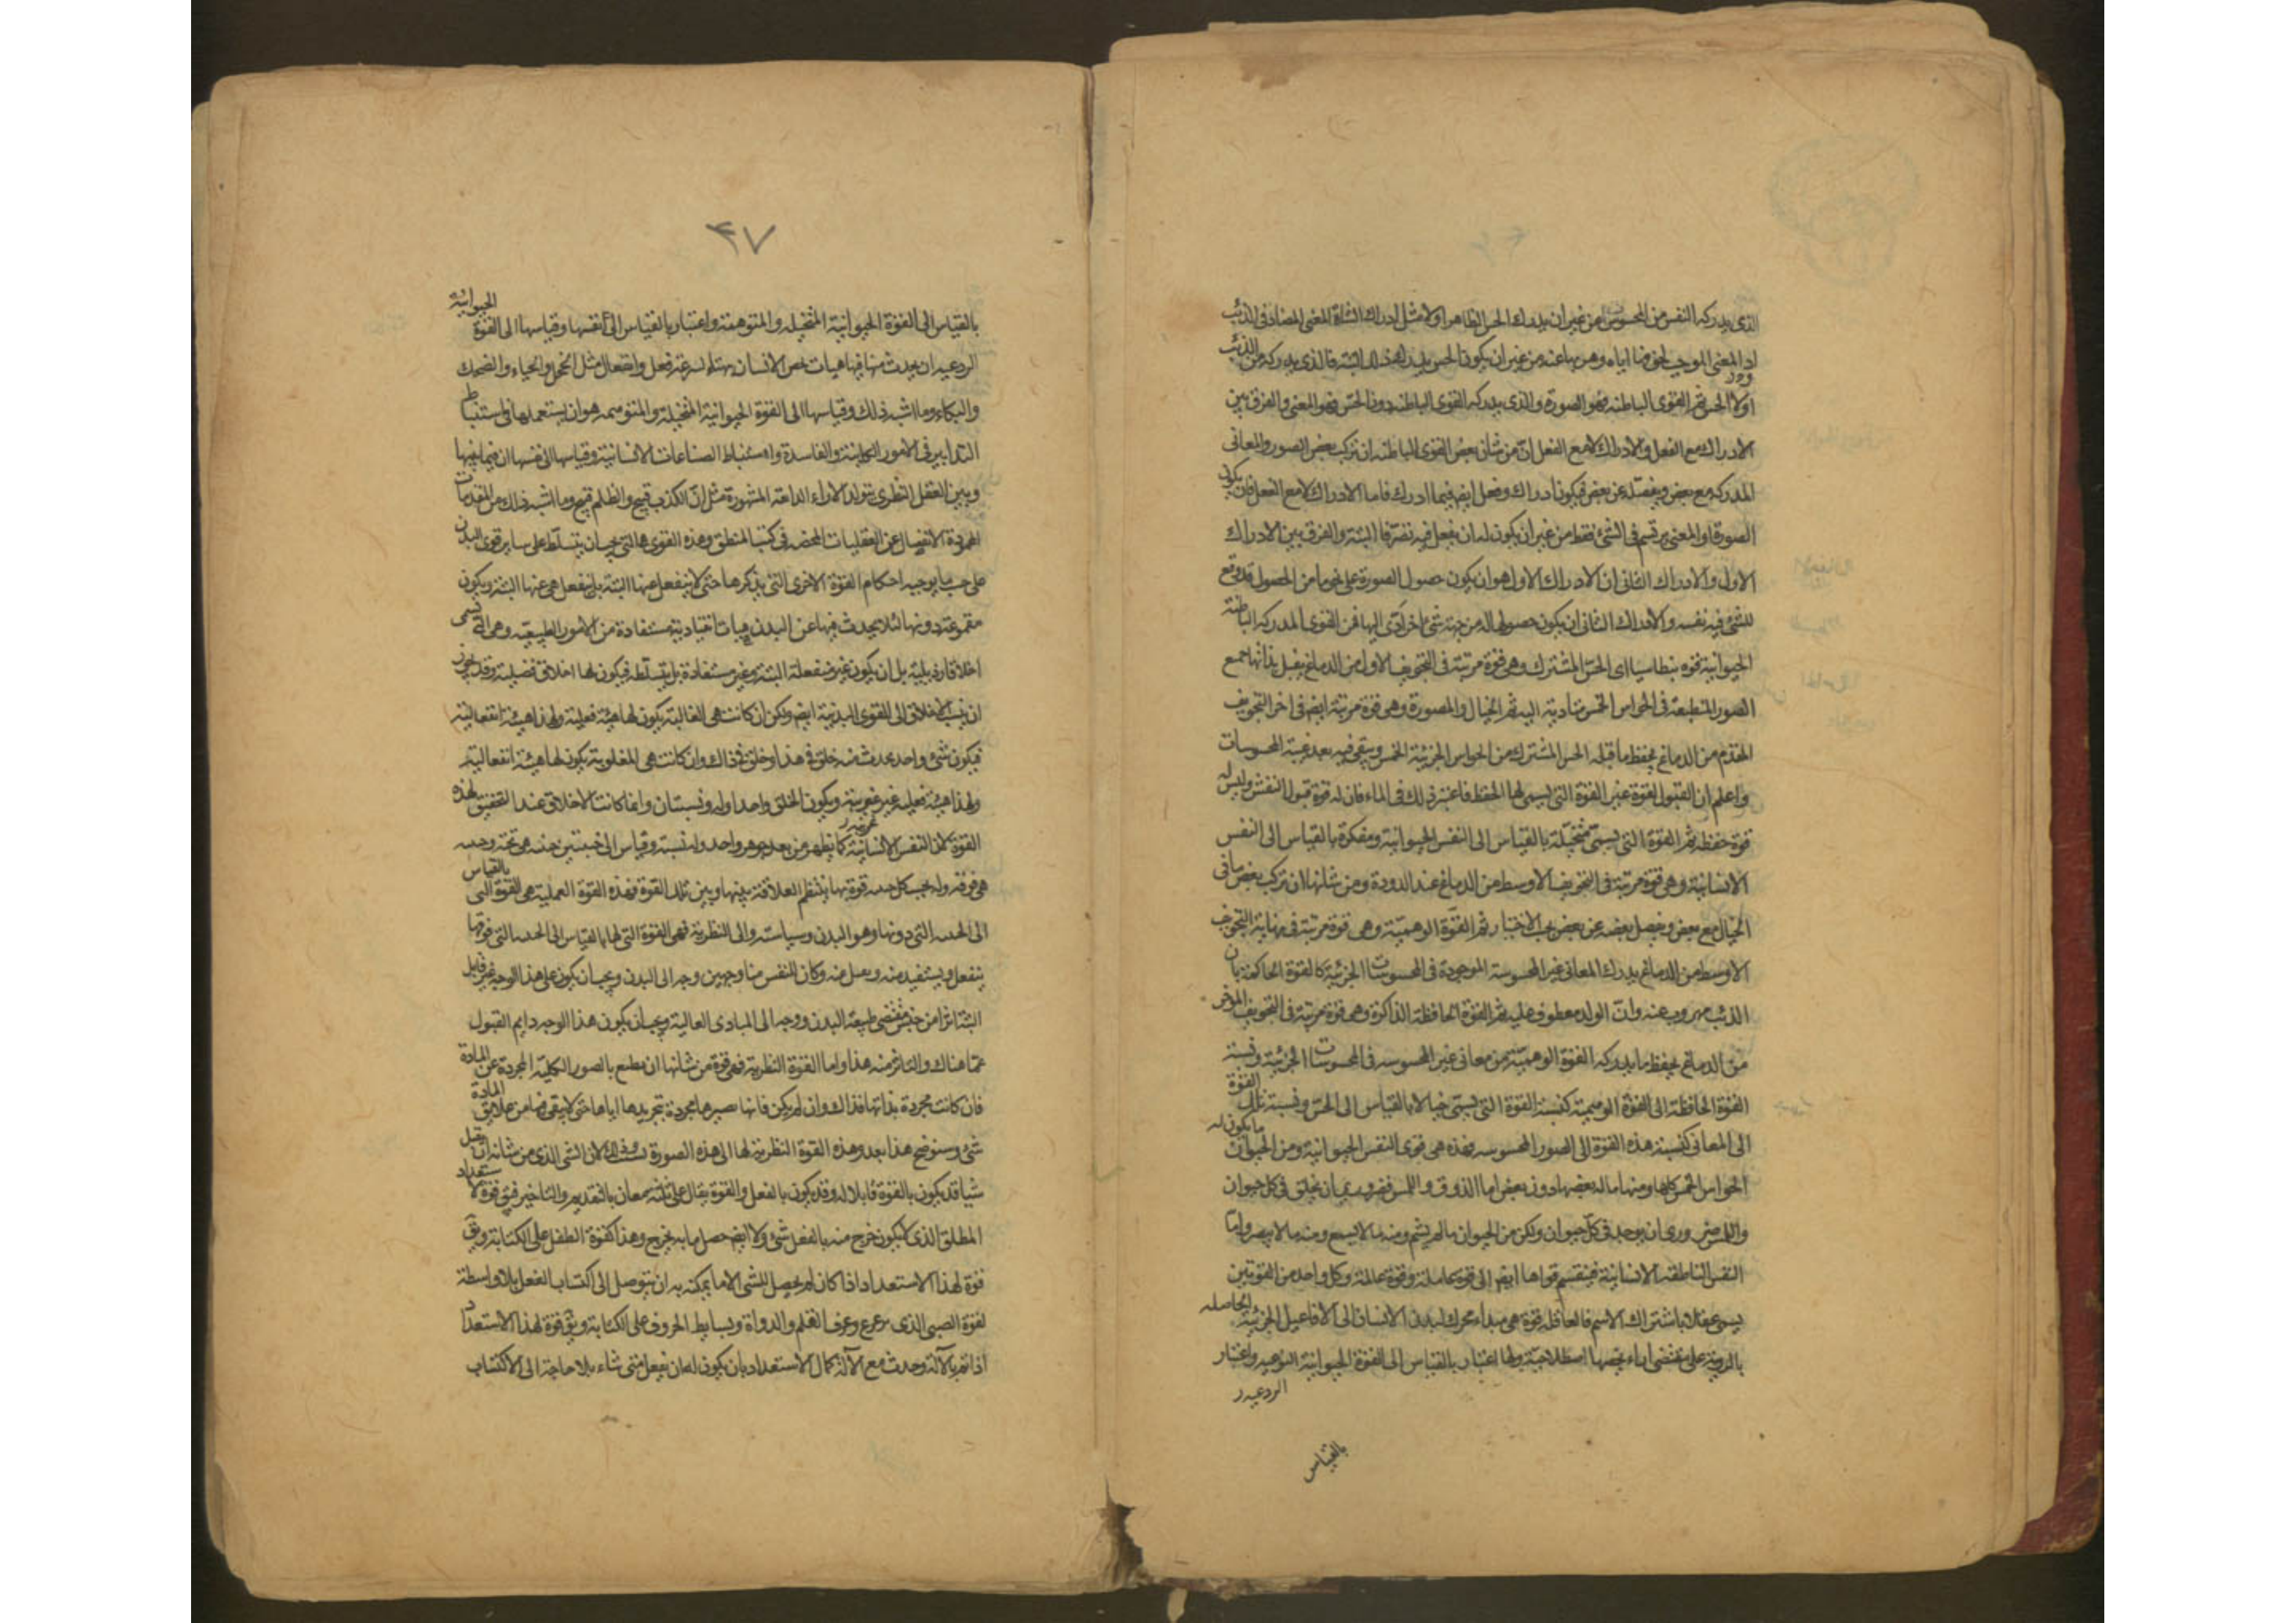 الذى يدركه النفس من المحسوس من غير ان يدرك الحس الظاهر اولا مثل ادراك الشاة المعنى المضاد فى الذئب
او المعنى الموجب لخوفها اياه وهربها عنه من غير ان يكون الحس يدرك هذا البتة فالذى يدركه من الذئب
اولا الحس ثم القوى الباطنه فهو الصورة والذى يدركه القوى الباطنه دون الحس فهو المعنى والفرق بين
الادراك مع الفعل والادراك لا مع الفعل ان من شان بعض القوى الباطنه ان تركب بعض الصور والمعانى
المدركه مع بعض ويفصله عن بعض فيكون ادراك وفعل ايضا فيما ادرك فاما الادراك لا مع الفعل فان يكون
الصورة او المعنى يرتسم فى الشئ فقط من غير ان يكون له ان يفعل فيه تصرفا البتة والفرق بين الادراك
الاول والادراك الثانى ان الادراك الاول هو ان يكون حصول الصورة على نحو ما من الحصول قد وقع
للشئ فيه نفسه والادراك الثانى ان يكون حصولها له من جهة شئ اخر ادى اليها فمن القوى المدركه الباطنة
الحيوانية قوه بنطاسيا اى الحس المشترك وهى قوة مرتبة فى التجويف الاول من الدماغ يقبل بذاتها جميع
الصور المنطبعة فى الحواس الخمس متادية اليه ثم الخيال والمصورة وهى قوة مرتبة ايضا فى اخر التجويف
المقدم من الدماغ يحفظ ما قبله الحس المشترك من الحواس الجزئية الخمس ويبقى فيه بعد غيبة المحسوسات
واعلم ان القبول لقوة غير القوة التى يسمى لها الحفظ فاعتبر ذلك فى الماء فان له قوة قبول النقش وليس له
قوة حفظه ثم القوة التى يسمى متخيلة بالقياس الى النفس الحيوانية ومفكرة بالقياس الى النفس
الانسانية وهى قوة مرتبة فى التجويف الاوسط من الدماغ عند الدودة ومن شانها ان تركب بعض ما فى
الخيال مع بعض وتفصل بعضه عن بعض بحسب الاختيار ثم القوة الوهمية وهى قوة مرتبة فى نهاية التجويف
الاوسط من الدماغ يدرك المعانى غير المحسوسة الموجودة فى المحسوسات الجزئية كالقوة الحاكمة بان
الذئب مهروب عنه وان الولد معطوف عليه ثم القوة الحافظة الذاكرة وهى قوة مرتبة فى التجويف المؤخر
من الدماغ يحفظ ما يدركه القوة الوهمية من معانى غير المحسوسه فى المحسوسات الجزئية ونسبة
القوة الحافظة الى القوة الوهمية كنسبة القوة التى يسمى خيالا بالقياس الى الحس ونسبة تلك القوة
الى المعانى كنسبة هذه القوة الى الصور المحسوسه فهذه هى قوى النفس الحيوانية ومن الحيوان ما يكون له
الحواس الخمس كلها ومنها ما له بعضها دون بعض اما الذوق واللمس فضرورى ان يخلق فى كل حيوان
واللمس ضرورى ان يوجد فى كل حيوان ولكن من الحيوان ما لم يشم ومنه ما لا يسمع ومنه ما لا يبصر واما
النفس الناطقه الانسانية فينقسم قواها ايضا الى قوة عاملة وقوة عالمة وكل واحد من القوتين
يسمى عقلا باشتراك الاسم فالعاقله قوة هى مبداء محرك لبدن الانسان الى الافاعيل الجزئية الحاصله
بالروية على مقتضى اراء يخصها اصطلاحية ولها اعتبار بالقياس الى القوة الحيوانية النزوعيه واعتبار
بالقياس
٤٧
بالقياس الى القوة الحيوانية المتخيله والمتوهمة واعتبار بالقياس الى نفسها وقياسها الى القوة الحيوانية
ان يحدث منها فيها هيات تخص الانسان يتهيا لسرعة فعل وانفعال مثل الخجل والحياء والضحك
والبكاء وما اشبه ذلك وقياسها الى القوة الحيوانية المتخيلة والمتوهمه هو ان يستعملها فى استنباط
التدابير فى الامور الكاينة والفاسدة واستنباط الصناعات الانسانية وقياسها الى نفسها ان فيما بينها
وبين العقل النظرى يتولد الاراء الذائعة المشهورة مثل ان الكذب قبيح والظلم قبيح وما اشبه ذلك من المقدمات
المحدودة الانفصال عن العقليات المحضه فى كتب المنطق وهذه القوى هى التى يجب ان يتسلط على ساير قوى البدن
على حسب ما يوجبه احكام القوة الاخرى التى نذكرها حتى لا ينفعل عنها البتة بل ينفعل هى عنها البتة ويكون
مقموعة دونها لئلا يحدث فيها عن البدن هيات انقيادية مستفادة من الامور الطبيعية وهى التى تسمى
اخلاقا رذيلية بل ان يكون غير منفعلة البتة وغير مستفادة بل يتسلطه فيكون لها اخلاق فضيلية وقد يجوز
ان ينسب الاخلاق الى القوى البدنية ايضا ولكن ان كانت هى الغالبة يكون لها هيئة فعلية ولهذا هيئة انفعالية
فيكون شئ واحد يحدث منه خلق فى هذا وخلق فى ذاك وان كانت هى المغلوبة يكون لها هيئة انفعالية
ولهذا هيئة فعليه غير غريبة ويكون الخلق واحدا وله نسبتان وانما كانت الاخلاق عند التحقيق لهذه
القوة لان النفس الانسانية كما يظهر من بعد جوهر واحد وله نسبة وقياس الى جنبتين جنبه هى تحته وجنبه
هى فوقه وله بحسب كل جنبه قوة بها ينتظم العلاقة بينها وبين تلك القوة فهذه القوة العملية هى القوة التى بالقياس
الى الجنبه التى دونها وهو البدن وسياسته والى النظرية فهى القوة التى لها بالقياس الى الجنبه التى فوقها
ينفعل ويستفيد منه ويقبل منه وكان للنفس منا وجهين وجه الى البدن ويجب ان يكون على هذا الوجه غير قابل
البتة اثرا من جنس مقتضى طبيعة البدن ووجه الى المبادى العالية ويجب ان يكون هذا الوجه دايم القبول
عما هناك والتاثر منه هذا واما القوة النظرية فهى قوة من شانها ان تطبع بالصور الكلية المجردة عن المادة
فان كانت مجردة بذاتها فذاك وان لم يكن فانها تصيرها مجردة بتجريدها اياها حتى لا يبقى فيها من علايق المادة
شئ وسنوضح هذا بعد وهذه القوة النظرية لها الى هذه الصورة نسب وذلك لان الشى الذى من شانه ان يقبل
شيا قد يكون بالقوة قابلا له وقد يكون بالفعل والقوة يقال على ثلثة معان بالتقديم والتاخير فيق قوة لاستعداد
المطلق الذى لا يكون خرج منه بالفعل شئ ولا ايضا حصل ما به يخرج وهذا كقوة الطفل على الكتابة ويق
قوة لهذا الاستعداد اذا كان لم يحصل للشى الا ما يمكنه به ان يتوصل الى اكتساب الفعل بلا واسطة
لقوة الصبى الذى ترعرع وعرف القلم والدواة وبسايط الحروف على الكتابة ويق قوة لهذا الاستعداد
اذا تم بالآلة وحدث مع الآلة كمال الاستعداد بان يكون له ان يفعل متى شاء بلا حاجة الى الاكتساب